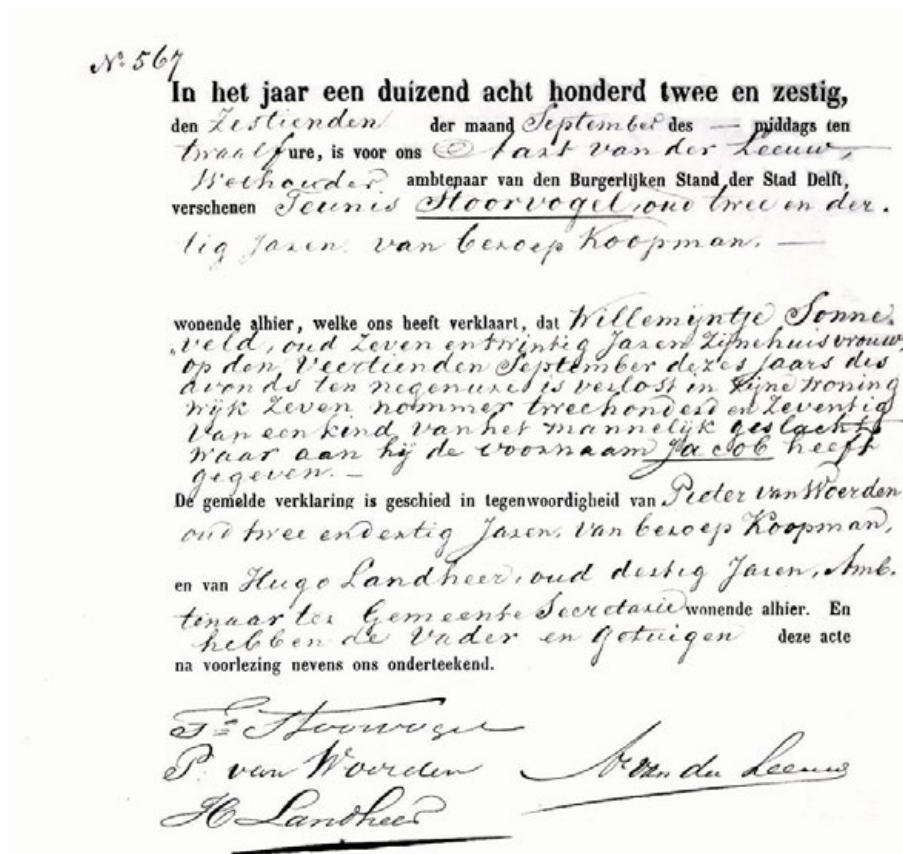 N: 567
In het jaar een duizend acht honderd twee en zestig,
den Zestienden der maand September des — middags ten
twaalf ure, is voor ons Aart van der Leeuw,
Wethouder ambtepaar van den Burgerlijken Stand der Stad Delft,
verschenen Teunis Stoorvogel, oud twee en der-
tig Jaren. van beroep Koopman. —
wonende alhier, welke ons heeft verklaart, dat Willemijntje Sonne-
veld, oud Zeven entwintig Jaren Zijnehuisvrouw,
op den Veertienden September dezes Jaars des
avonds ten negenure is verlost in zijne woning
wijk Zeven nommer tweehonderd en Zeventig
van een kind van het mannelijk geslacht
waar aan hij de voornaam Jacob heeft
gegeven. —
De gemelde verklaring is geschied in tegenwoordigheid van Pieter van Woerden
oud twee endertig Jaren. van beroep Koopman,
en van Hugo Landheer, oud dertig Jaren, Amb-
tenaar ter Gemeente Secretarie wonende alhier. En
hebben de Vader en Getuigen deze acte
na voorlezing nevens ons onderteekend.
Ts Stoorvogel
P. van Woerden A van der Leeuw
H Landheer